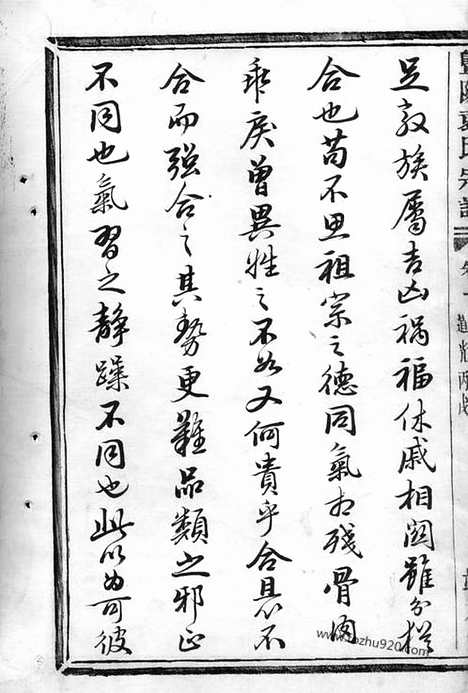 暨陽袁氏宗譜
足敦族屬吉凶禍福休戚相關雖分猶
合也苟不思祖宗之德同氣相殘骨肉
乖戾曾異姓之不如又何貴乎合且不
合而强合之其勢更難品類之邪正
不同也氣習之靜躁不同也此以為可彼
www.fozhu920.com